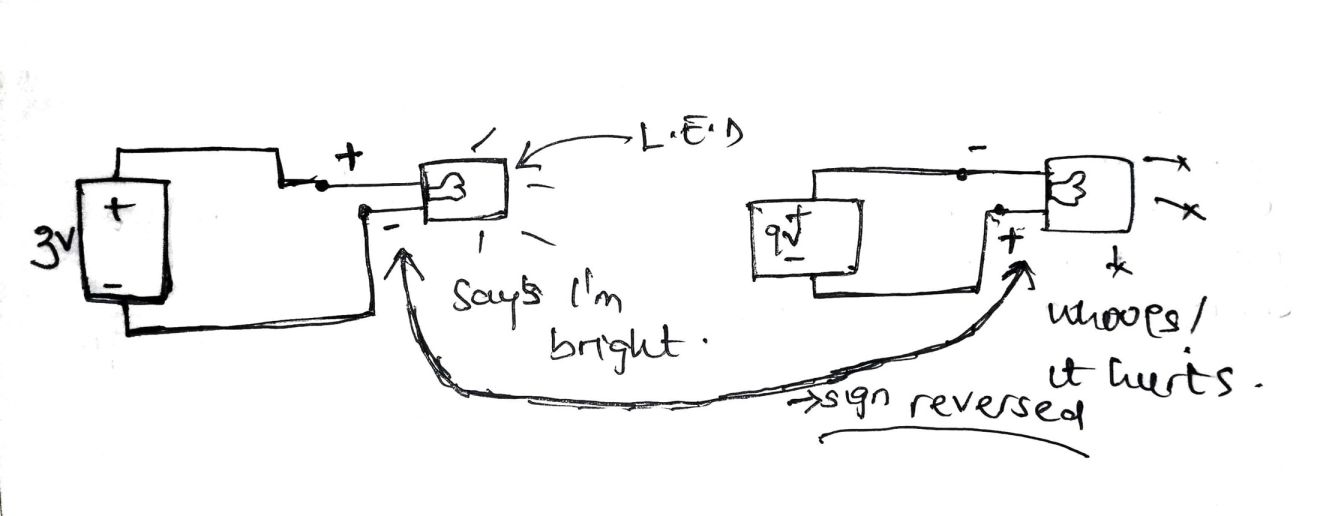 +
L.E.D
3V
+
-
-
says I'm
bright.
-
9V
+
-
+
whoops!
it hurts.
→sign reversed